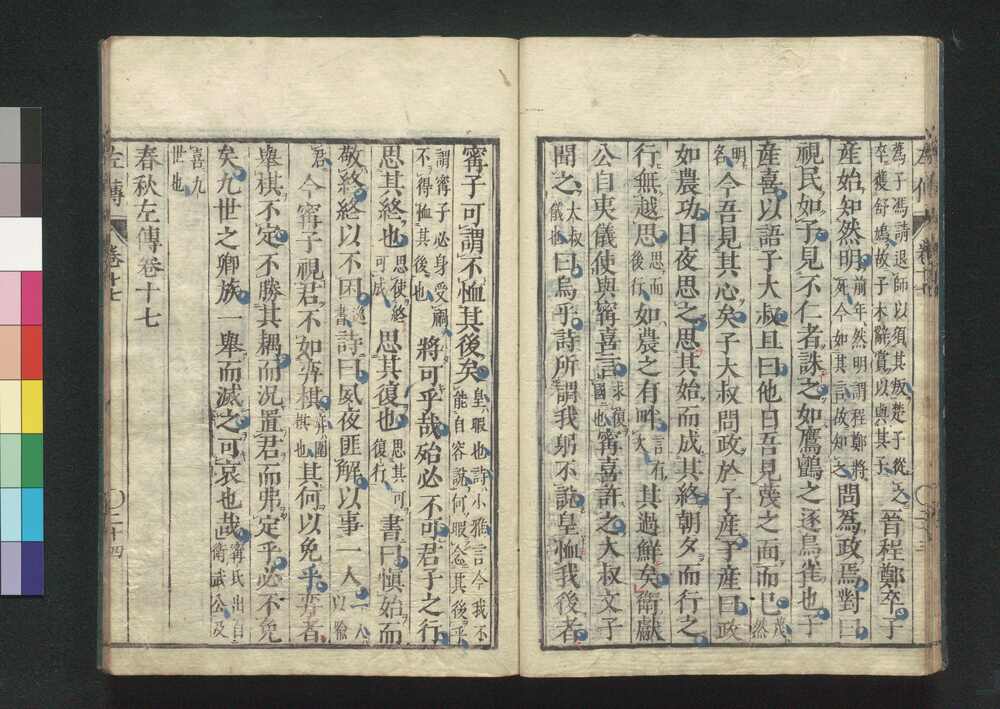 蒍子馮請退師以須其叛楚子從之卒獲舒鳩故子木辭賞以與其子晉程鄭卒子
產始知然明前年然明謂程鄭將死今如其言故知之問為政焉對曰
視民如子見不仁者誅之如鷹鸇之逐鳥雀也子
產喜以語子大叔且曰他日吾見蔑之面而已蔑然
明名今吾見其心矣子大叔問政於子產子產曰政
如農功日夜思之思其始而成其終朝夕而行之
行無越思思而後行如農之有畔言有次其過鮮矣衛獻
公自夷儀使與甯喜言求復國也甯喜許之大叔文子
聞之大叔儀也曰烏乎詩所謂我躬不說皇恤我後者
甯子可謂不恤其後矣皇暇也詩小雅言今我不能自容說何暇念其後乎
謂甯子必身受禍不得恤其後也將可乎哉殆必不可君子之行
思其終也思使終可成思其復也思其可復行書曰慎始而
敬終終以不困逸書詩曰夙夜匪解以事一人一人以喻
君今甯子視君不如弈棋弈圍棋也其何以免乎弈者
舉棋不定不勝其耦而況置君而弗定乎必不免
矣九世之卿族一舉而滅之可哀也哉甯氏出自衛武公及
喜九世也
春秋左傳卷十七
左傳 卷十七 〇二十四